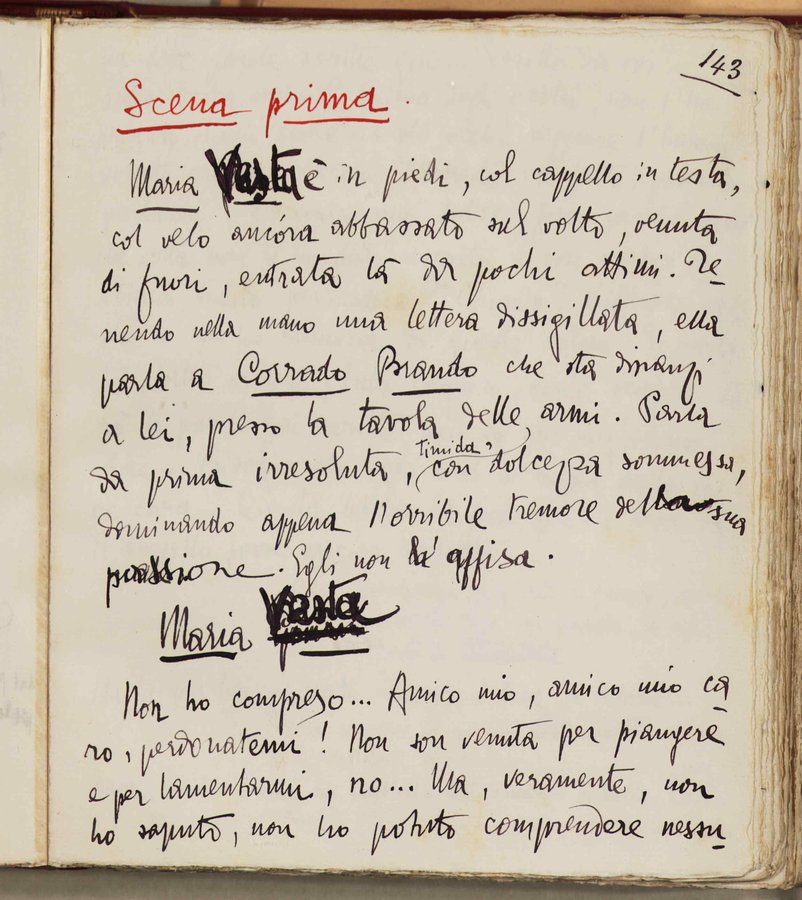 143
Scena prima.
Maria Vesta è in piedi, col cappello in testa,
col velo ancóra abbassato sul volto, venuta
di fuori, entrata là da pochi attimi. Te-
nendo nella mano una lettera dissigillata, ella
parla a Corrado Brando che sta dinanzi
a lei, presso la tavola delle armi. Parla
timida,
da prima irresoluta, con dolcezza sommessa,
dominando appena l'orribile tremore della sua
passione. Egli non la affisa.
Maria Vesta
Non ho compreso... Amico mio, amico mio ca
ro, perdonatemi! Non son venuta per piangere
e per lamentarmi, no... Ma, veramente, non
ho saputo, non ho potuto comprendere nessu-